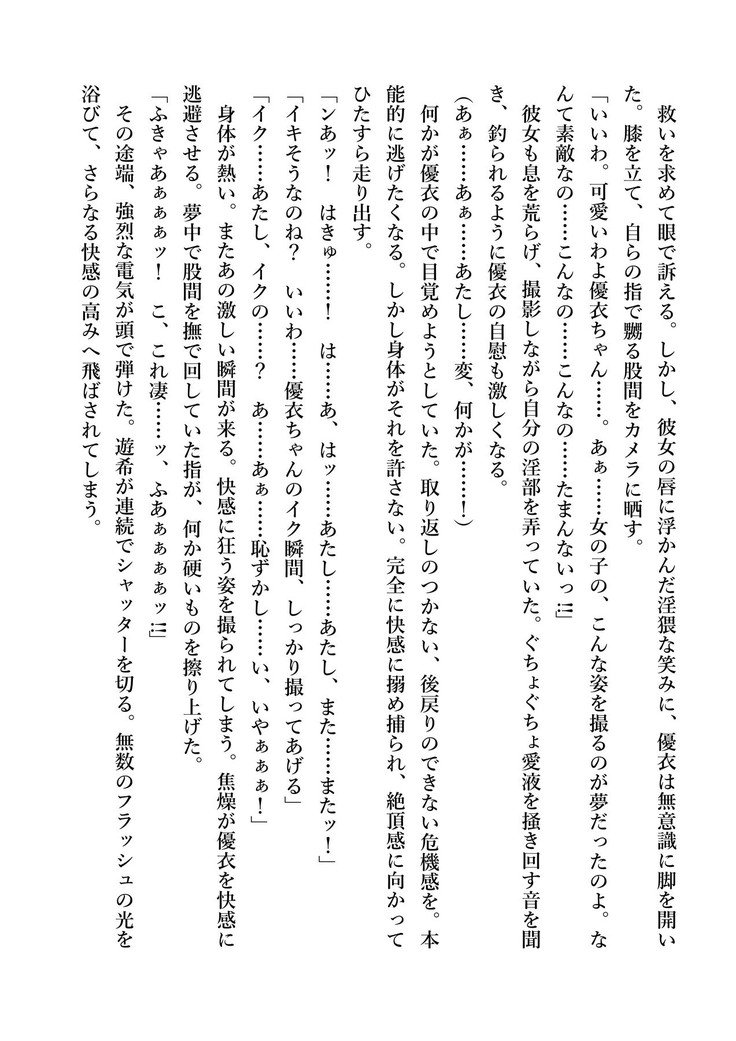 救いを求めて眼で訴える。しかし、彼女の唇に浮かんだ淫猥な笑みに、優衣は無意識に脚を開い
た。膝を立て、自らの指で嬲る股間をカメラに晒す。
「いいわ。可愛いわよ優衣ちゃん……。あぁ……女の子の、こんな姿を撮るのが夢だったのよ。な
んて素敵なの……こんなの……こんなの……たまんないっ!!」
彼女も息を荒らげ、撮影しながら自分の淫部を弄っていた。ぐちょぐちょ愛液を掻き回す音を聞
き、釣られるように優衣の自慰も激しくなる。
(あぁ……あぁ……あたし……変、何かが……!)
何かが優衣の中で目覚めようとしていた。取り返しのつかない、後戻りのできない危機感を。本
能的に逃げたくなる。しかし身体がそれを許さない。完全に快感に搦め捕られ、絶頂感に向かって
ひたすら走り出す。
「ンあッ! はきゅ……! は……あ、はッ……あたし……あたし、また……またッ!」
「イキそうなのね? いいわ……優衣ちゃんのイク瞬間、しっかり撮ってあげる」
「イク……あたし、イクの……? あ……あぁ……恥ずかし……い、いやぁぁぁ!」
身体が熱い。またあの激しい瞬間が来る。快感に狂う姿を撮られてしまう。焦燥が優衣を快感に
逃避させる。夢中で股間を撫で回していた指が、何か硬いものを擦り上げた。
「ふきゃあぁぁぁッ! こ、これ凄……ッ、ふあぁぁぁぁッ!!」
その途端、強烈な電気が頭で弾けた。遊希が連続でシャッターを切る。無数のフラッシュの光を
浴びて、さらなる快感の高みへ飛ばされてしまう。